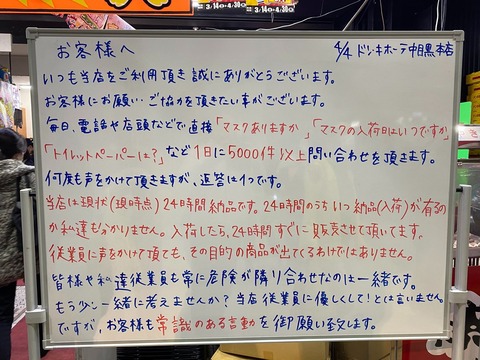 3/14〜4/30
3/14〜4/30
お客様へ
4/4 ドン・キホーテ中目黒本店
いつも当店をご利用頂き誠にありがとうございます。
お客様にお願い・ご協力を頂きたい事がございます。
毎日、電話や店頭などで直接「マスクありますか」「マスクの入荷日はいつですか」
「トイレットペーパーは?」など1日に5000件以上問い合わせを頂きます。
何度も声をかけて頂きますが、返答は1つです。
当店は現状(現時点)24時間納品です。24時間のうちいつ納品(入荷)が有るの
か私達も分かりません。入荷したら、24時間すぐに販売させて頂いてます。
従業員に声をかけて頂いても、その目的の商品が出てくるわけではありません。
皆様や私達従業員も常に危険が隣り合わせなのは一緒です。
もう少し一緒に考えませんか?当店従業員に優しくして!とは言いません。
ですが、お客様も常識のある言動を御願い致します。